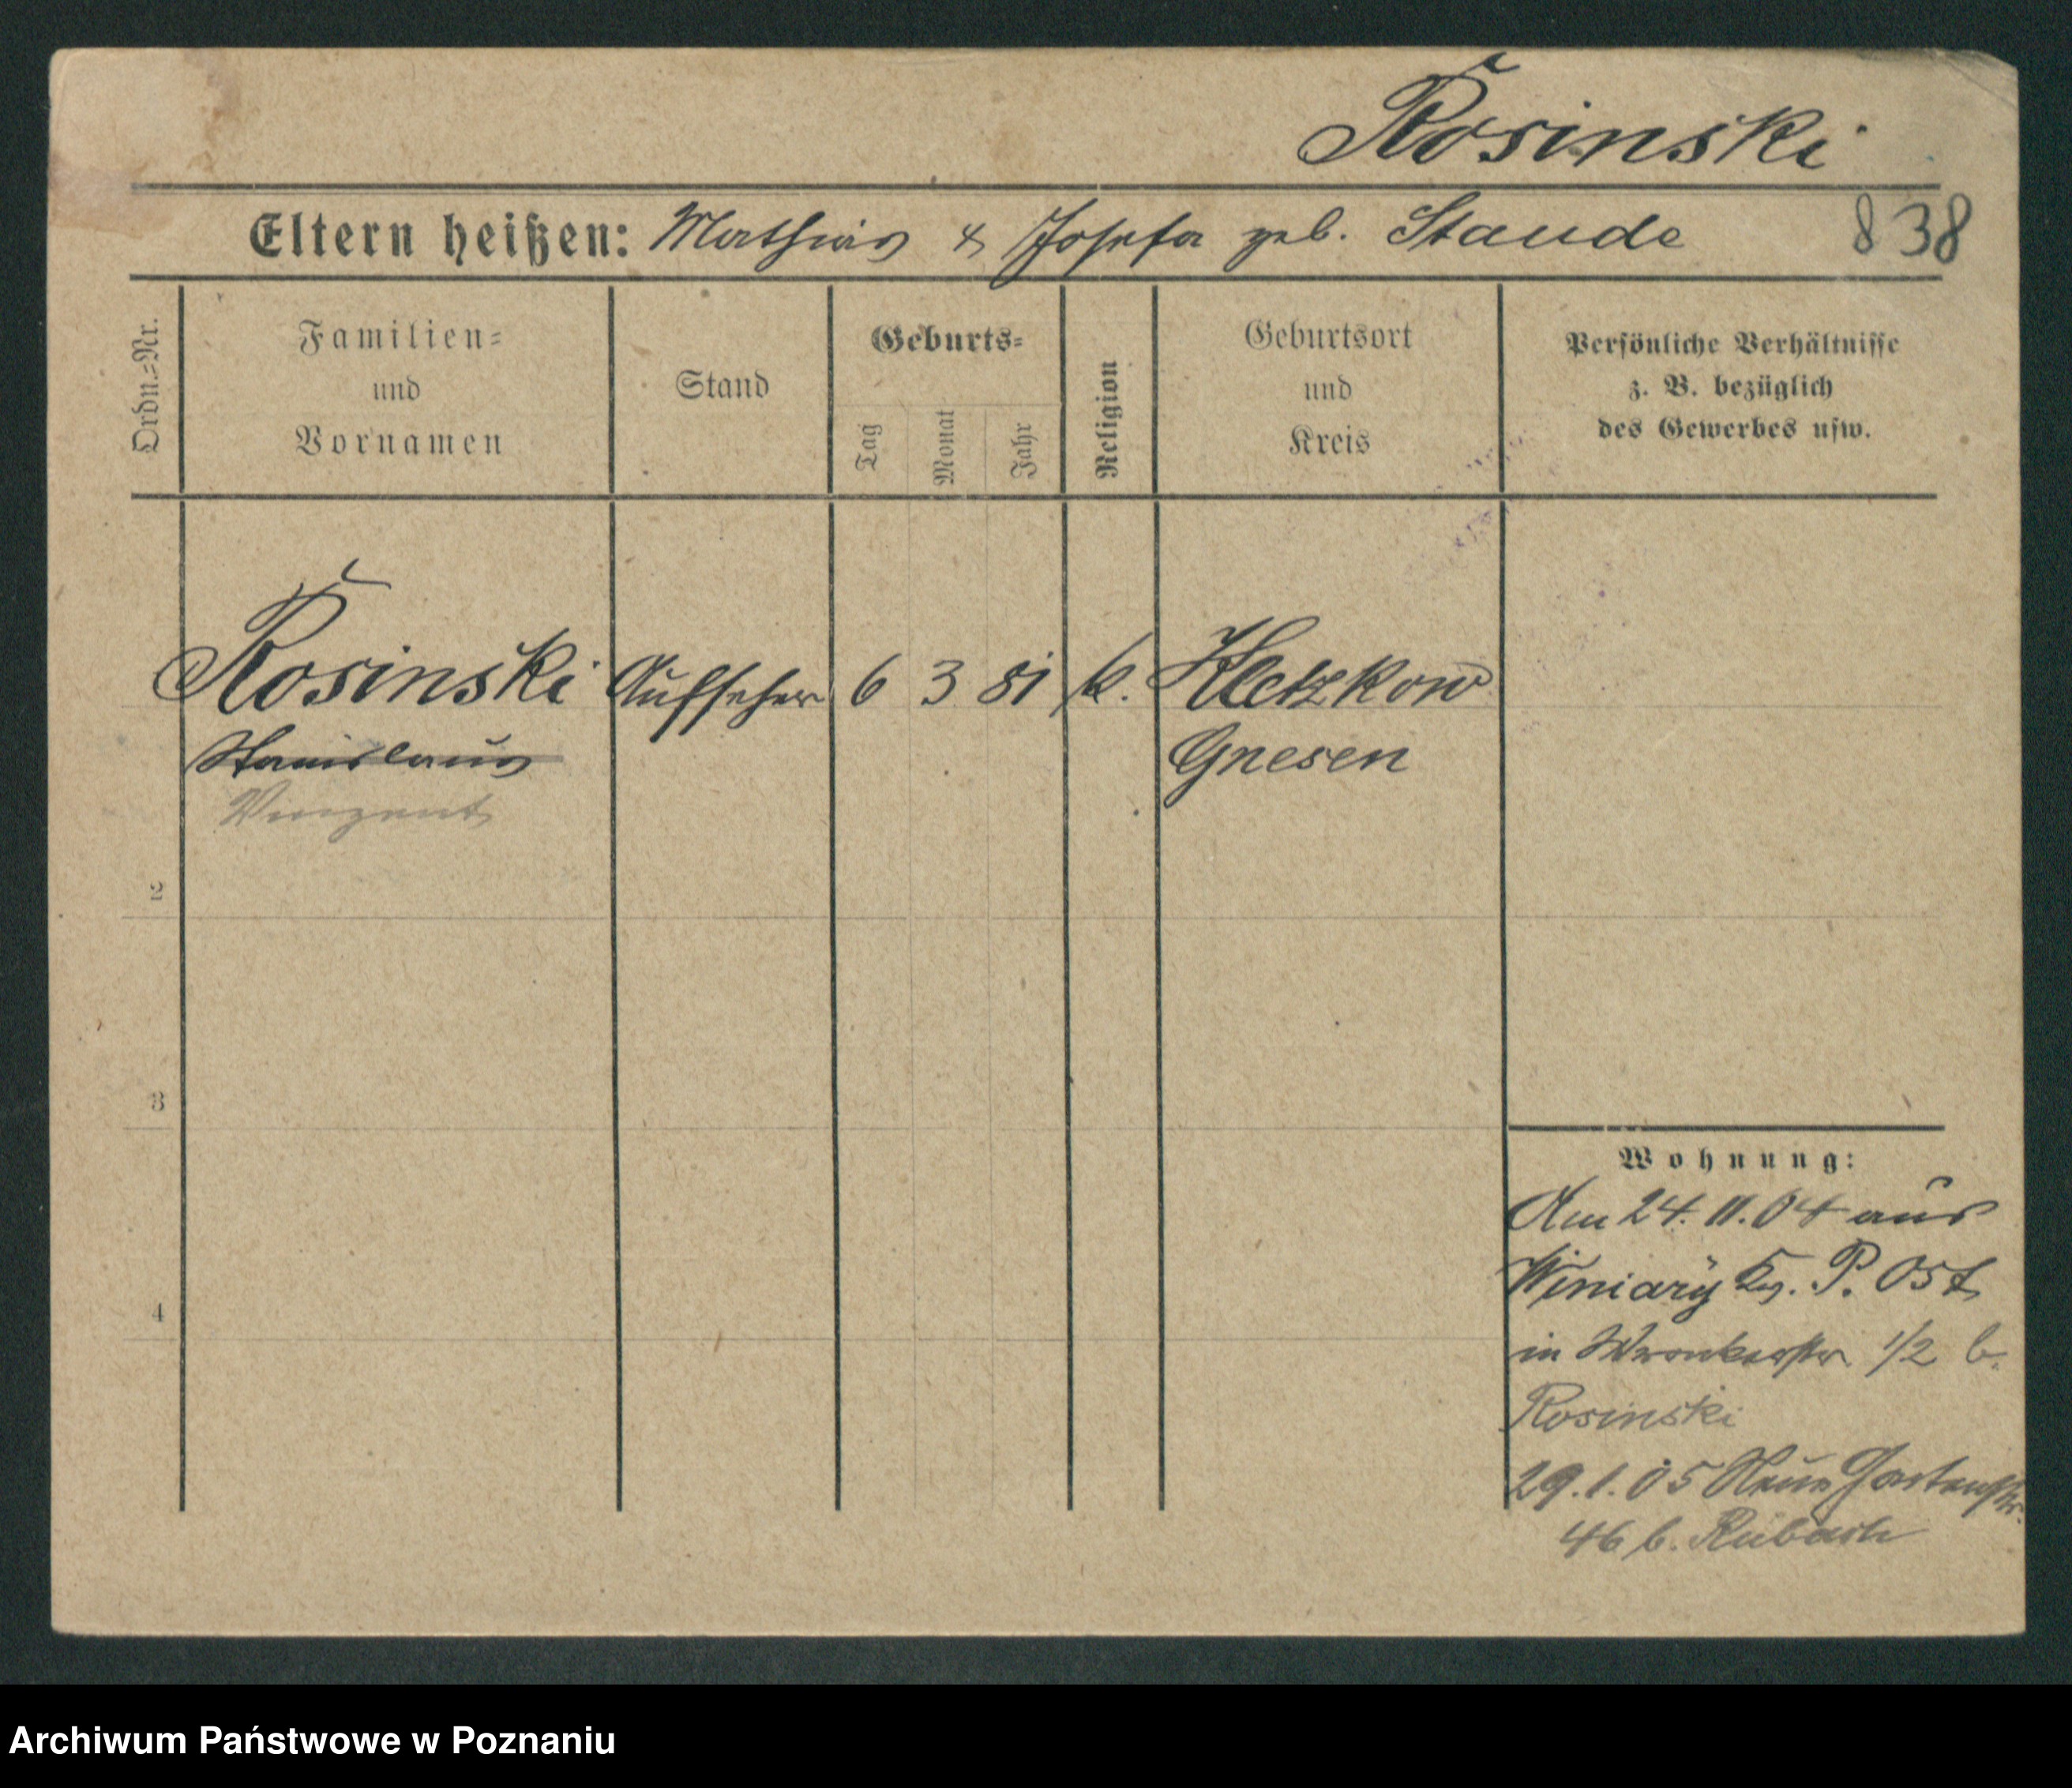 Rosinski
Eltern heißen: Mathias & Josefa geb. Staude 838
Ordn.-Nr.
Familien-
und
Vornamen
Stand
Geburts-
Tag
Monat
Jahr
Religion
Geburtsort
und
Kreis
Persönliche Verhältnisse
z. B. bezüglich
des Gewerbes usw.
Rosinski Aufseher 6 3 81 k. Kletzkow
Stanislaus Gnesen
Vinzent
2
3
4
Wohnung:
Am 24. 11. 04 aus
Winiary Kr. P. Ost
in Wronkerstr. 1/2 b.
Rosinski
29. 1. 05 Neue Gartenstr.
46 b. Rübasch
Archiwum Państwowe w Poznaniu